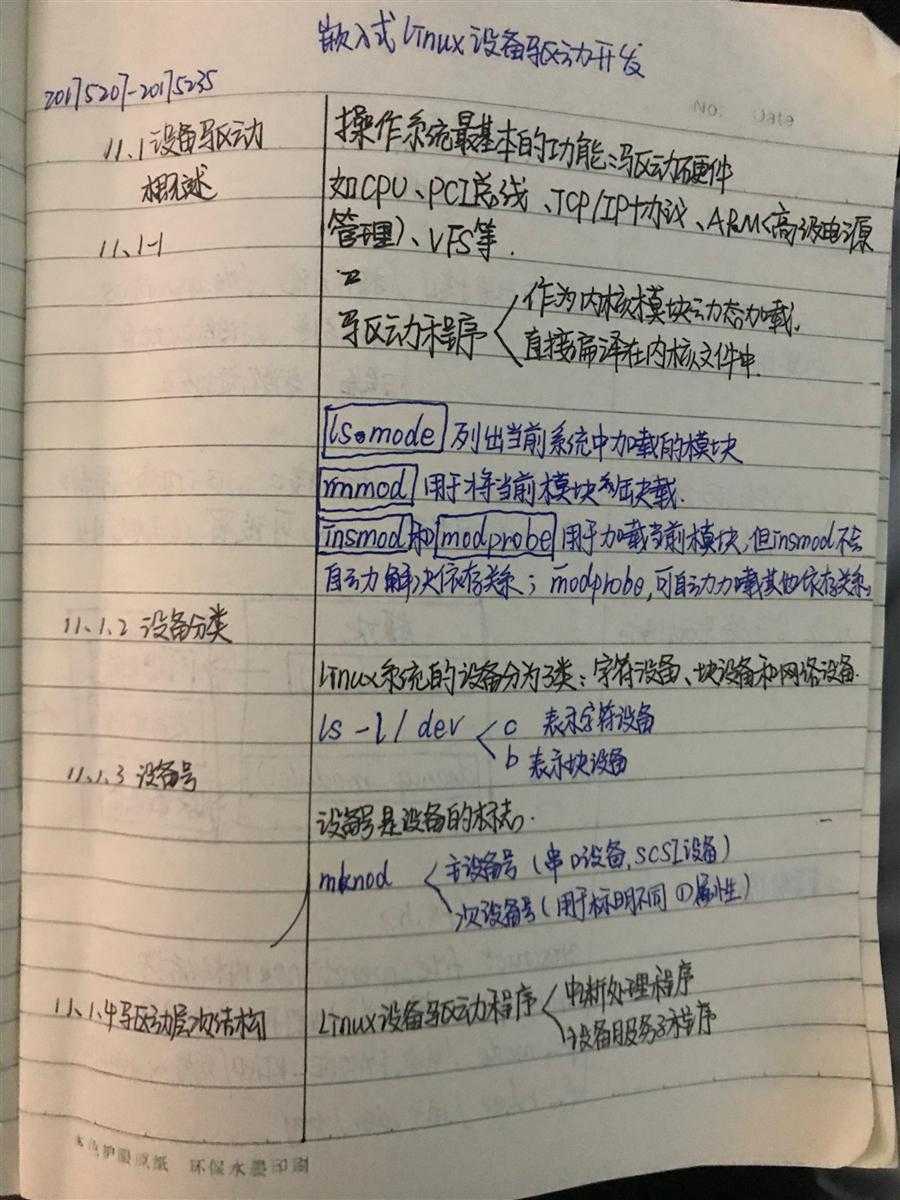 嵌入式Linux设备驱动开发
20175207-20175235
11.1设备驱动
概述
11.1.1
操作系统最基本的功能:驱动硬件
如CPU、PCI总线、TCP/IP协议、APM(高级电源
管理)、VFS等.
驱动程序
作为内核模块动态加载.
直接编译在内核文件中.
lsmode 列出当前系统中加载的模块
rmmod 用于将当前模块卸载.
insmod 和 modprobe 用于加载当前模块,但insmod不会
自动解决依存关系;modprobe,可自动加载其他依存关系。
11.1.2 设备分类
Linux系统的设备分为3类:字符设备、块设备和网络设备.
ls -l /dev
c 表示字符设备
b 表示块设备
11.1.3 设备号
设备号是设备的标志.
mknod
主设备号(串口设备,SCSI设备)
次设备号(用于标明不同的属性)
11.1.4驱动层次结构
Linux设备驱动程序
中断处理程序
设备服务子程序
本色护眼原纸 环保水墨印刷